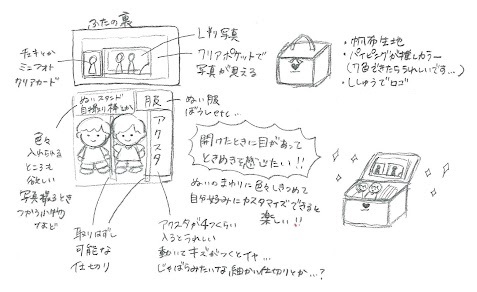 ふたの裏
L判写真
クリアポケットで
写真が見える
チェキとか
ミニフォト
クリアカード
・帆布生地
・パイピングが推しカラー
(7色できたらうれしいです…)
・ししゅうでロゴ
ぬいスタンド
自撮り棒とか
服
ぬい服
ぼうしetc…
アクスタ
色々
入れられる
ところも
欲しい
写真撮るとき
つかう小物
など
開けたときに目があって
ときめきを感じたい!!
ぬいのまわりに色々しきつめて
自分好みにカスタマイズできると
楽しい!!
取りはずし
可能な
仕切り
アクスタが4つくらい
入るとうれしい
動いてキズがつくとイヤ…
じゃばらみたいな細かい仕切りとか…?